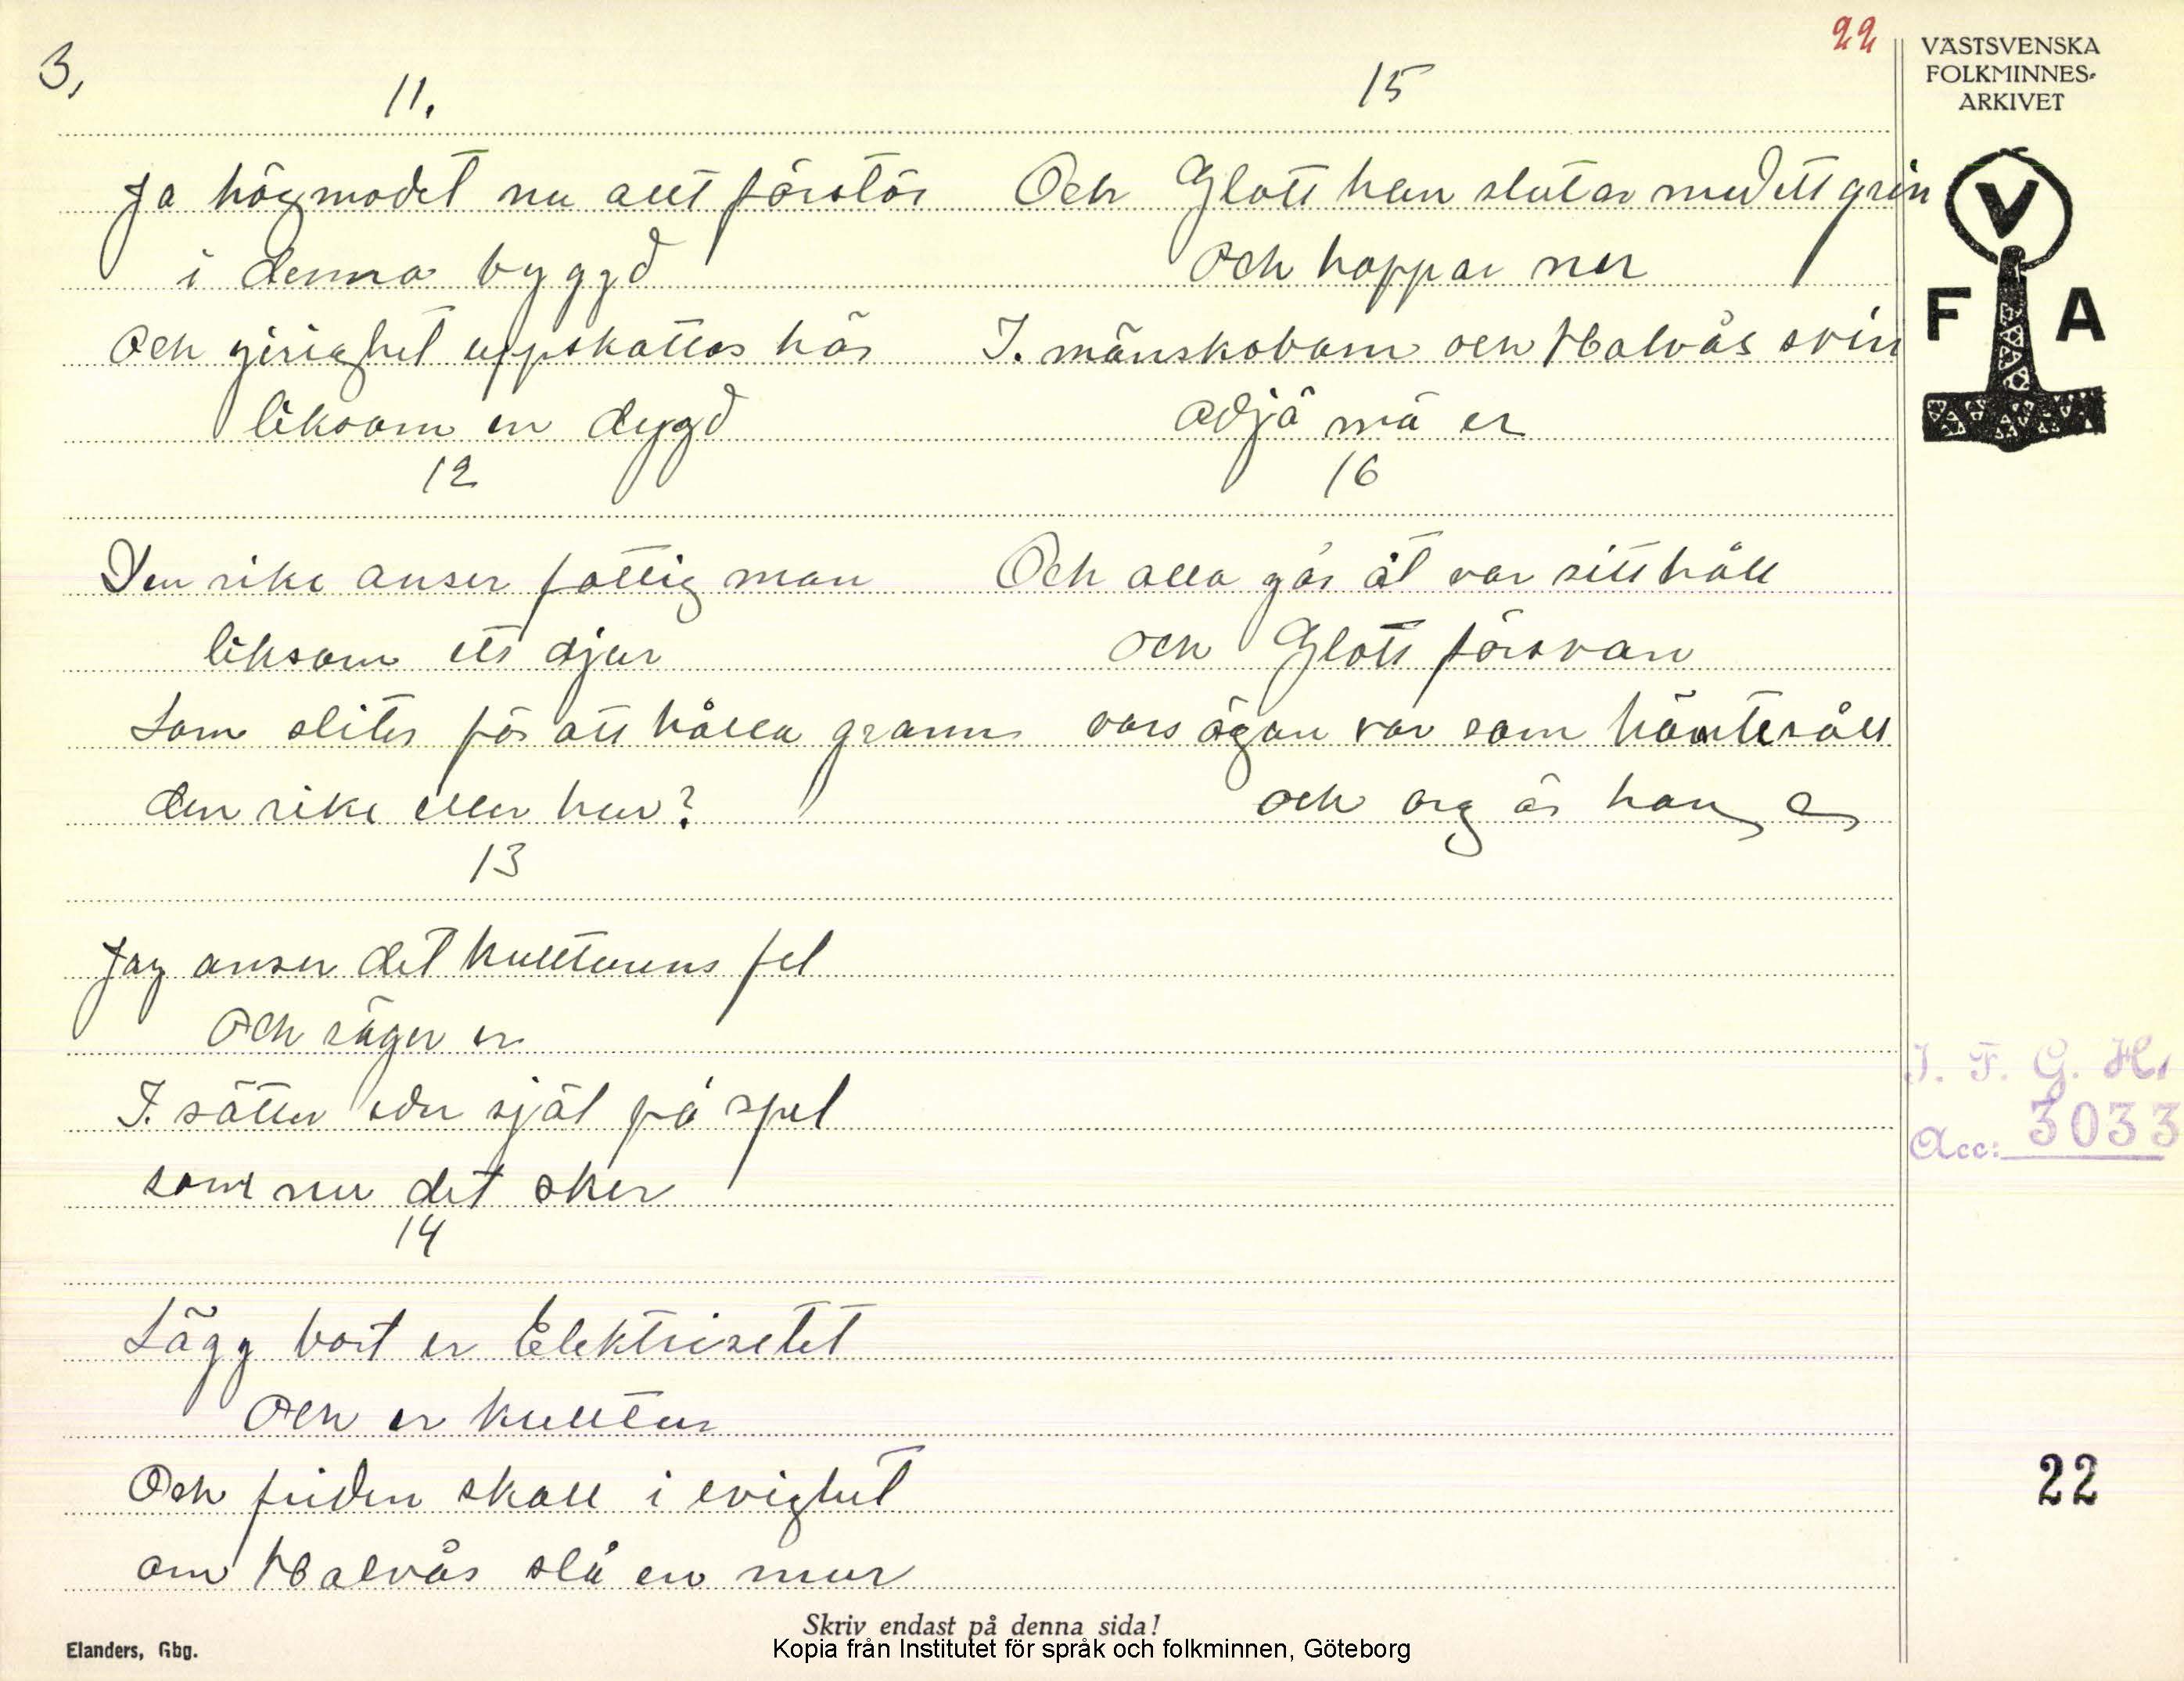 3,
22
11.
Ja högmodet nu allt förstör
i denna byggd
Och girighet uppskattas här
liksom en dygd
12
Den rike anser fattig man
liksom ett djur
Som sliter för att hålla grann
den rike eller hur?
13
Jag anser det kulturens fel
Och säger er
I. sätter eder själ på spel
som nu det sker
14
Lägg bort er Elektrisetet
Och er kultur
Och friden skall i evighet
om Halvås slå en mur
15
Och Glott han slutar med ett grin
och hoppar ner
I. mänskobarn och Halvås svin
adjö må er
16
Och alla går åt var sitt håll
och Glott försvan
vars ögon var som
och arg är han
VÄSTSVENSKA
FOLKMINNES-
ARKIVET
V
F A
I. F. G. H.
Acc: 3033
22
Skriv endast på denna sida!
Elanders, Gbg.
Kopia från Institutet för språk och folkminnen, Göteborg